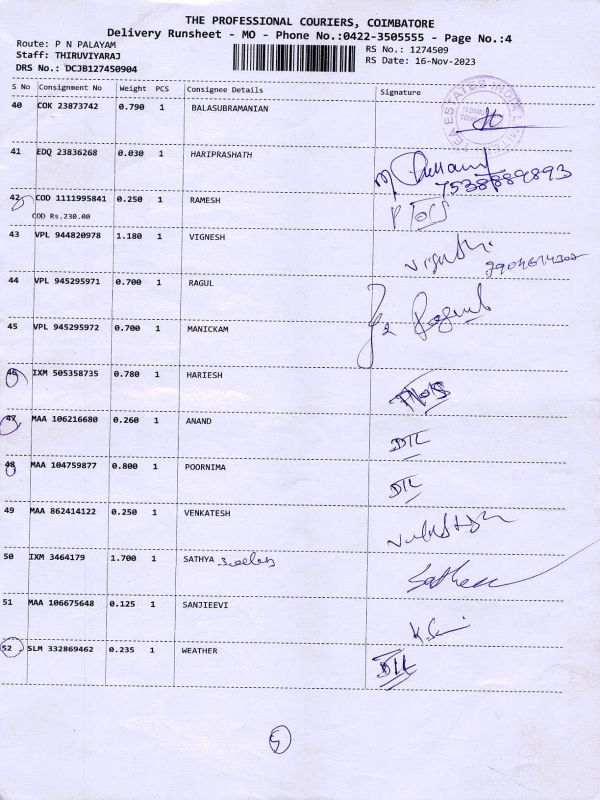 THE PROFESSIONAL COURIERS, COIMBATORE
Delivery Runsheet - MO - Phone No.:0422-3505555 - Page No.:4
Route: P N PALAYAM
Staff: THIRUVIYARAJ
DRS No.: DCJB127450904
RS No.: 1274509
RS Date: 16-Nov-2023
S No Consignment No Weight PCS Consignee Details Signature
40 COK 23873742 0.790 1 BALASUBRAMANIAN
41 EDQ 23836268 0.030 1 HARIPRASHATH
7538889893
42 COD 1111995841 0.250 1 RAMESH
COD Rs.230.00
43 VPL 944820978 1.180 1 VIGNESH
44 VPL 945295971 0.700 1 RAGUL
45 VPL 945295972 0.700 1 MANICKAM
46 IXM 505358735 0.780 1 HARIESH
47 MAA 106216680 0.260 1 ANAND DTL
48 MAA 104759877 0.800 1 POORNIMA DTL
49 MAA 862414122 0.250 1 VENKATESH
50 IXM 3464179 1.700 1 SATHYA
51 MAA 106675648 0.125 1 SANJIEEVI
52 SLM 332869462 0.235 1 WEATHER DTL
5